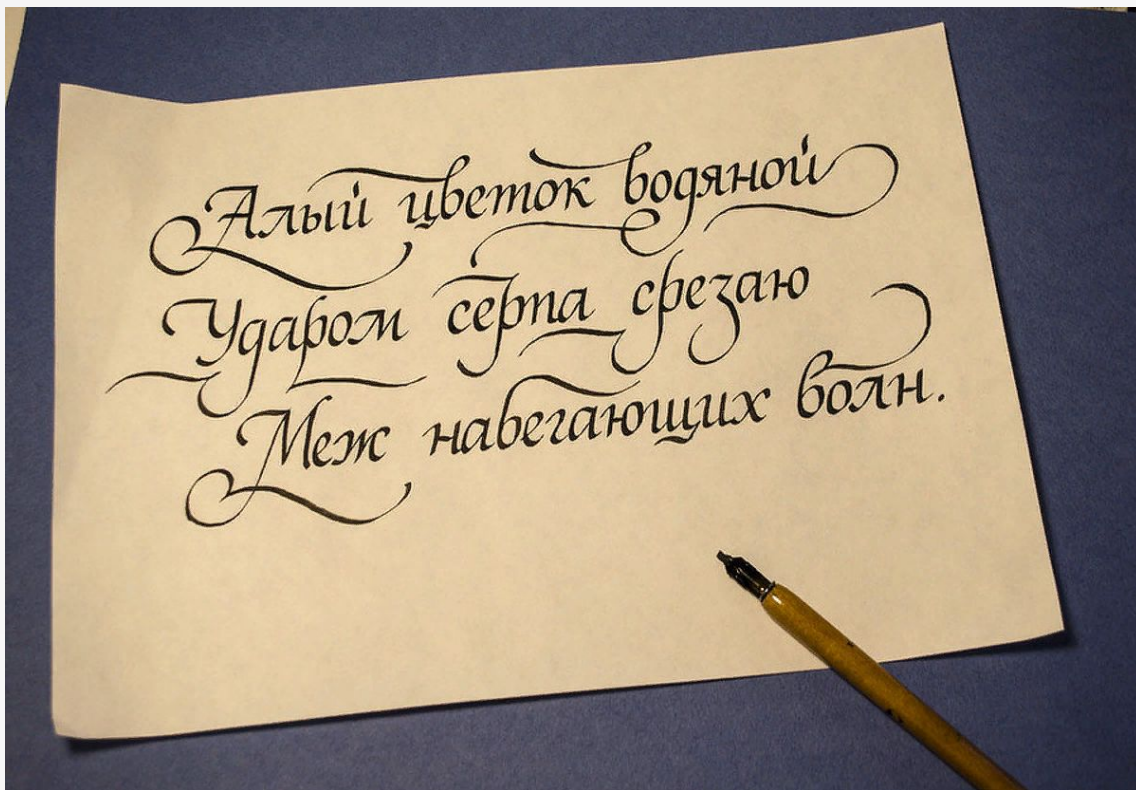 Алый цветок водяной
Ударом серпа срезаю
Меж набегающих волн.